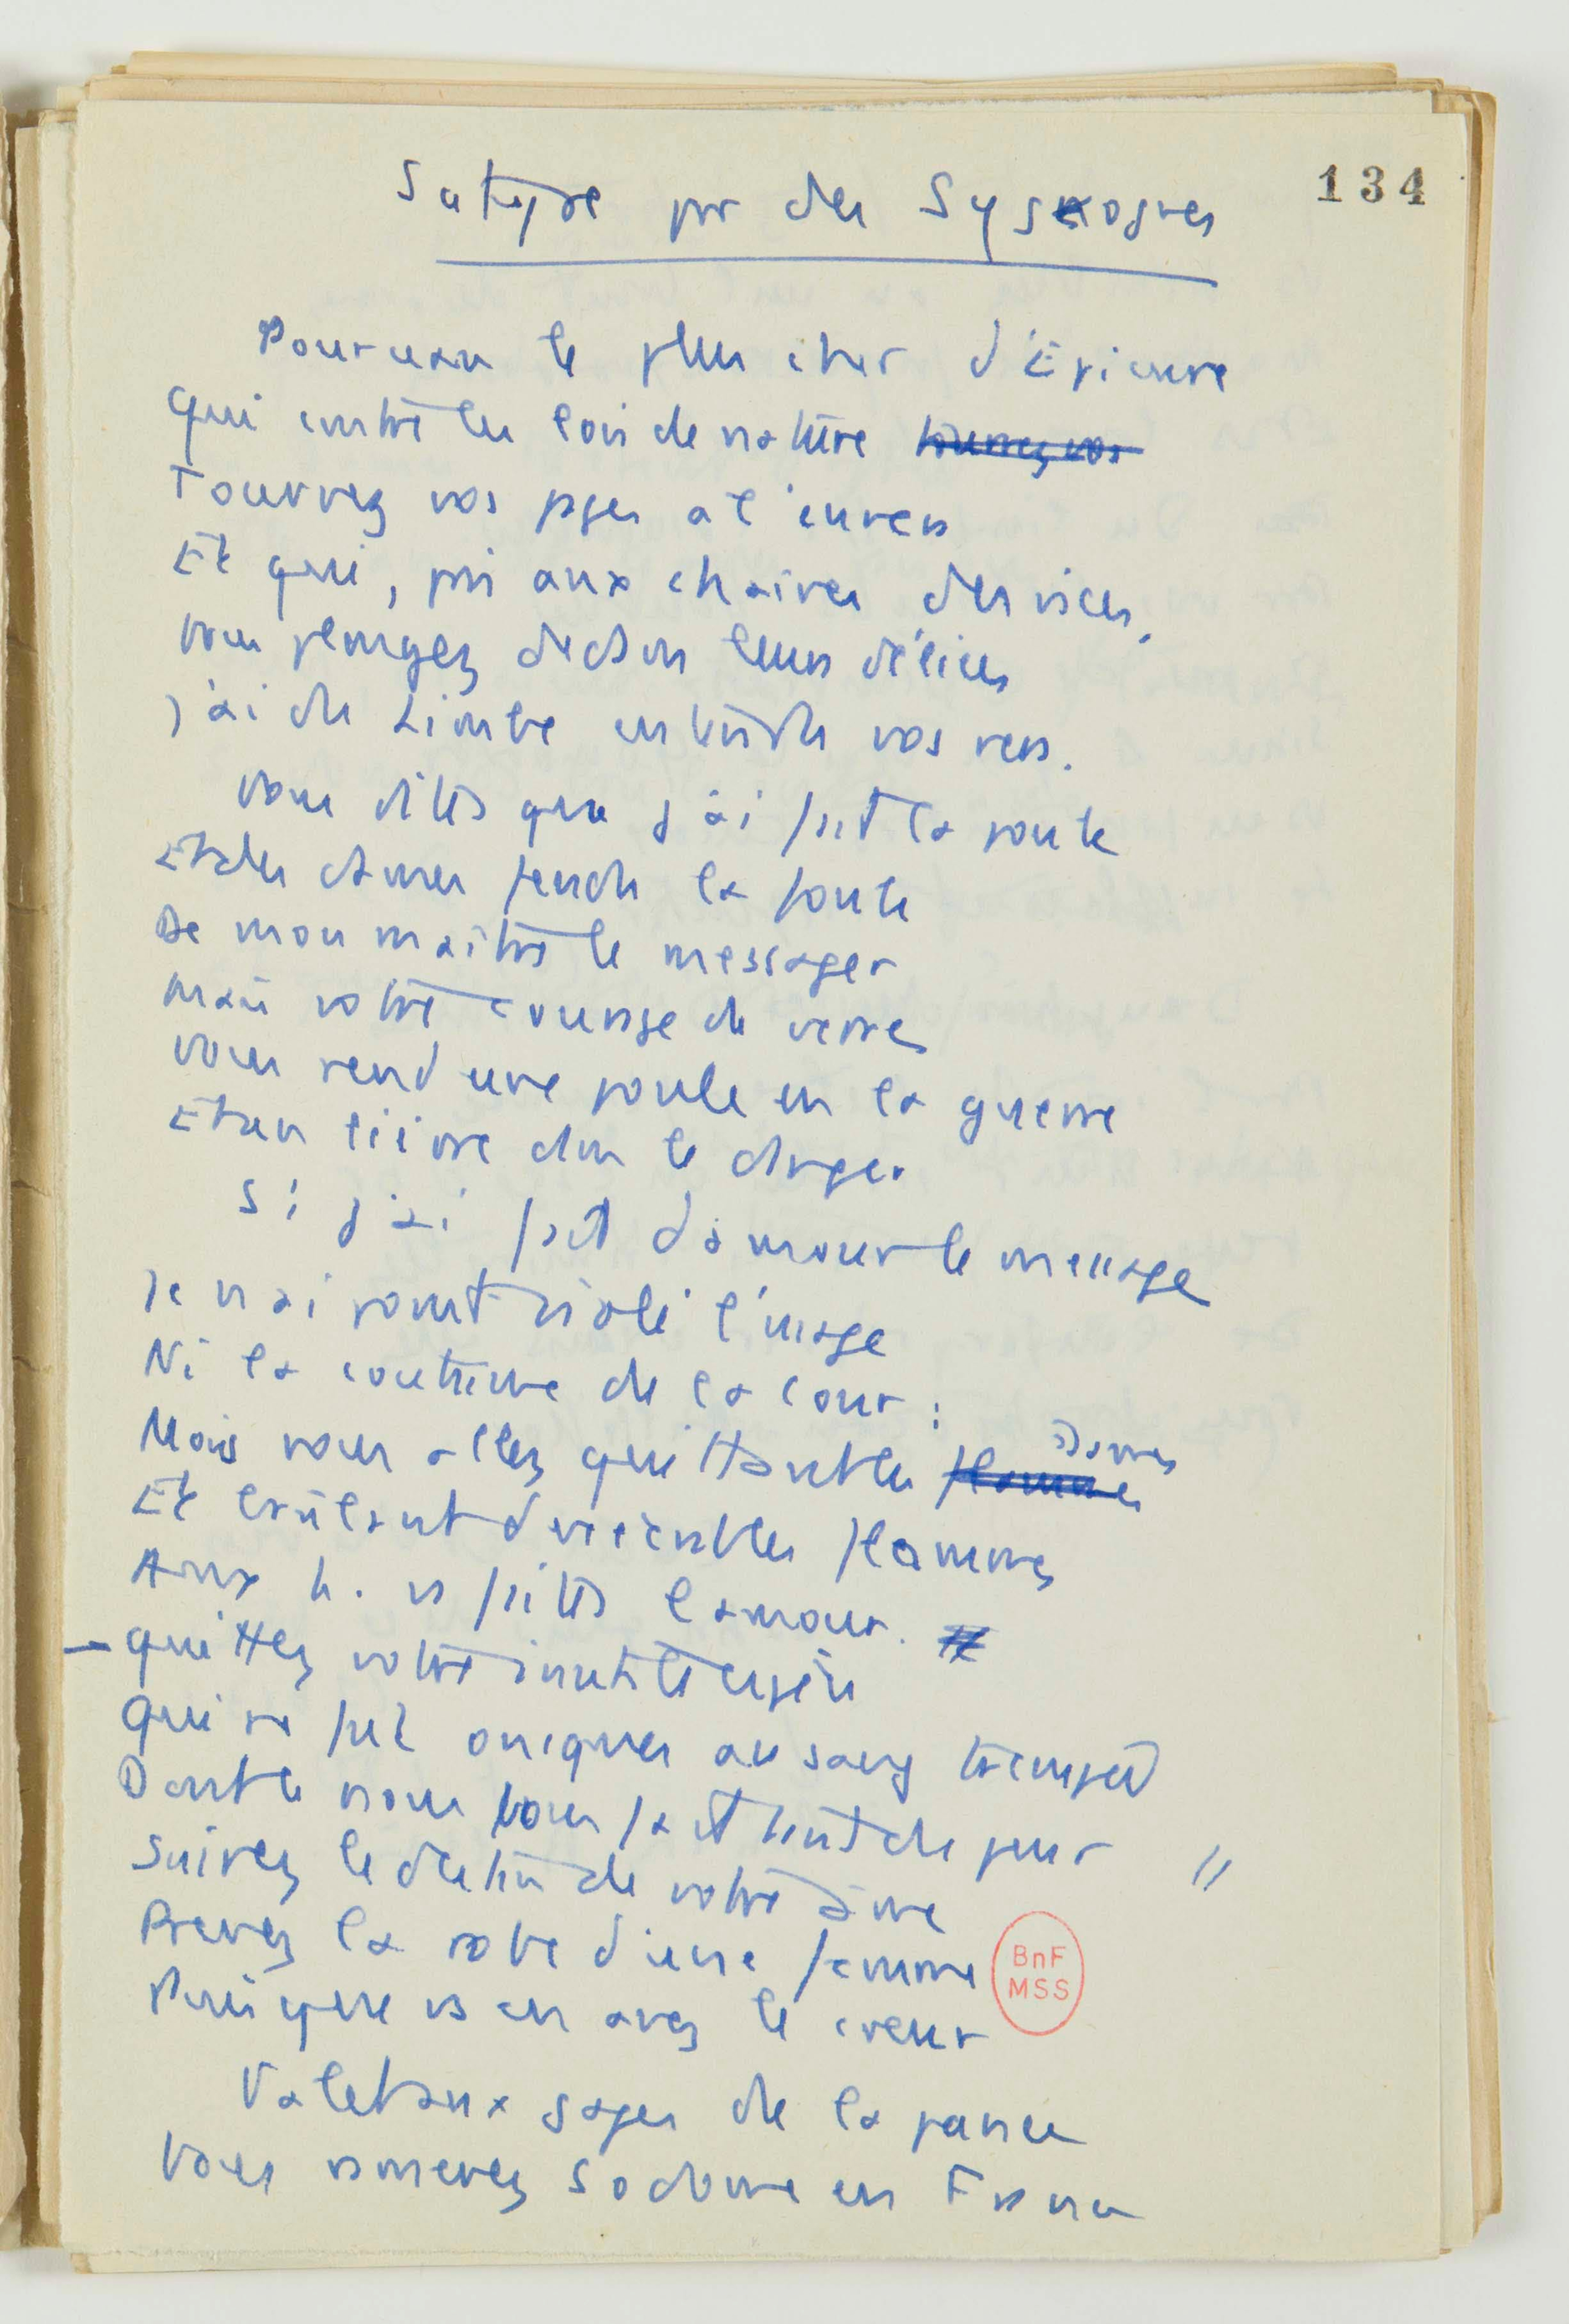 134
Satyre pr des Sysnognes
Pourceau le plus cher d'Epicure
Qui contre les lois de nature tournez vos
Tournez vos pages a l'envers
Et qui, pris aux chaines des vices,
Vous plongez dedans leurs délices
J'ai de limbe entendu vos vers.
Vous dites que j'ai fait la poule
Et des dames fendu la foule
De mon maitre le messager
Mais votre courage de verre
Vous rend une poule en la guerre
Et un lièvre dans le danger
Si j'ai fait d'amour le message
Je n'ai point violé l'usage
Ni la coutume de la cour :
Mais vous allez quittant les flammes Dames
Et brûlant d'exécrables flammes
Aux h. vs faites l'amour.
- Quittez votre inutile espée
Qui ne fut oncques au sang trempée
Dont le nom vous fait tant de peur //
Suivez le destin de votre âme
Prenez la robe d'une femme
Puisque vs en avez le coeur
Valet aux gages de la panse
Vous ramenez Sodome en France
BnF
MSS